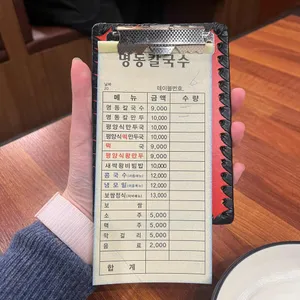 명동칼국수
테이블번호
메뉴 금액 수량
명동칼국수 9,000
명동칼만두 10,000
평양식만두국 10,000
평양식떡만두국 10,000
떡국 9,000
평양식왕만두 9,000
새싹왕비빔밥 10,000
콩국수 12,000
냉모밀 12,000
보쌈정식 13,000
보쌈
소주 5,000
맥주 5,000
막걸리 5,000
음료 2,000
합계